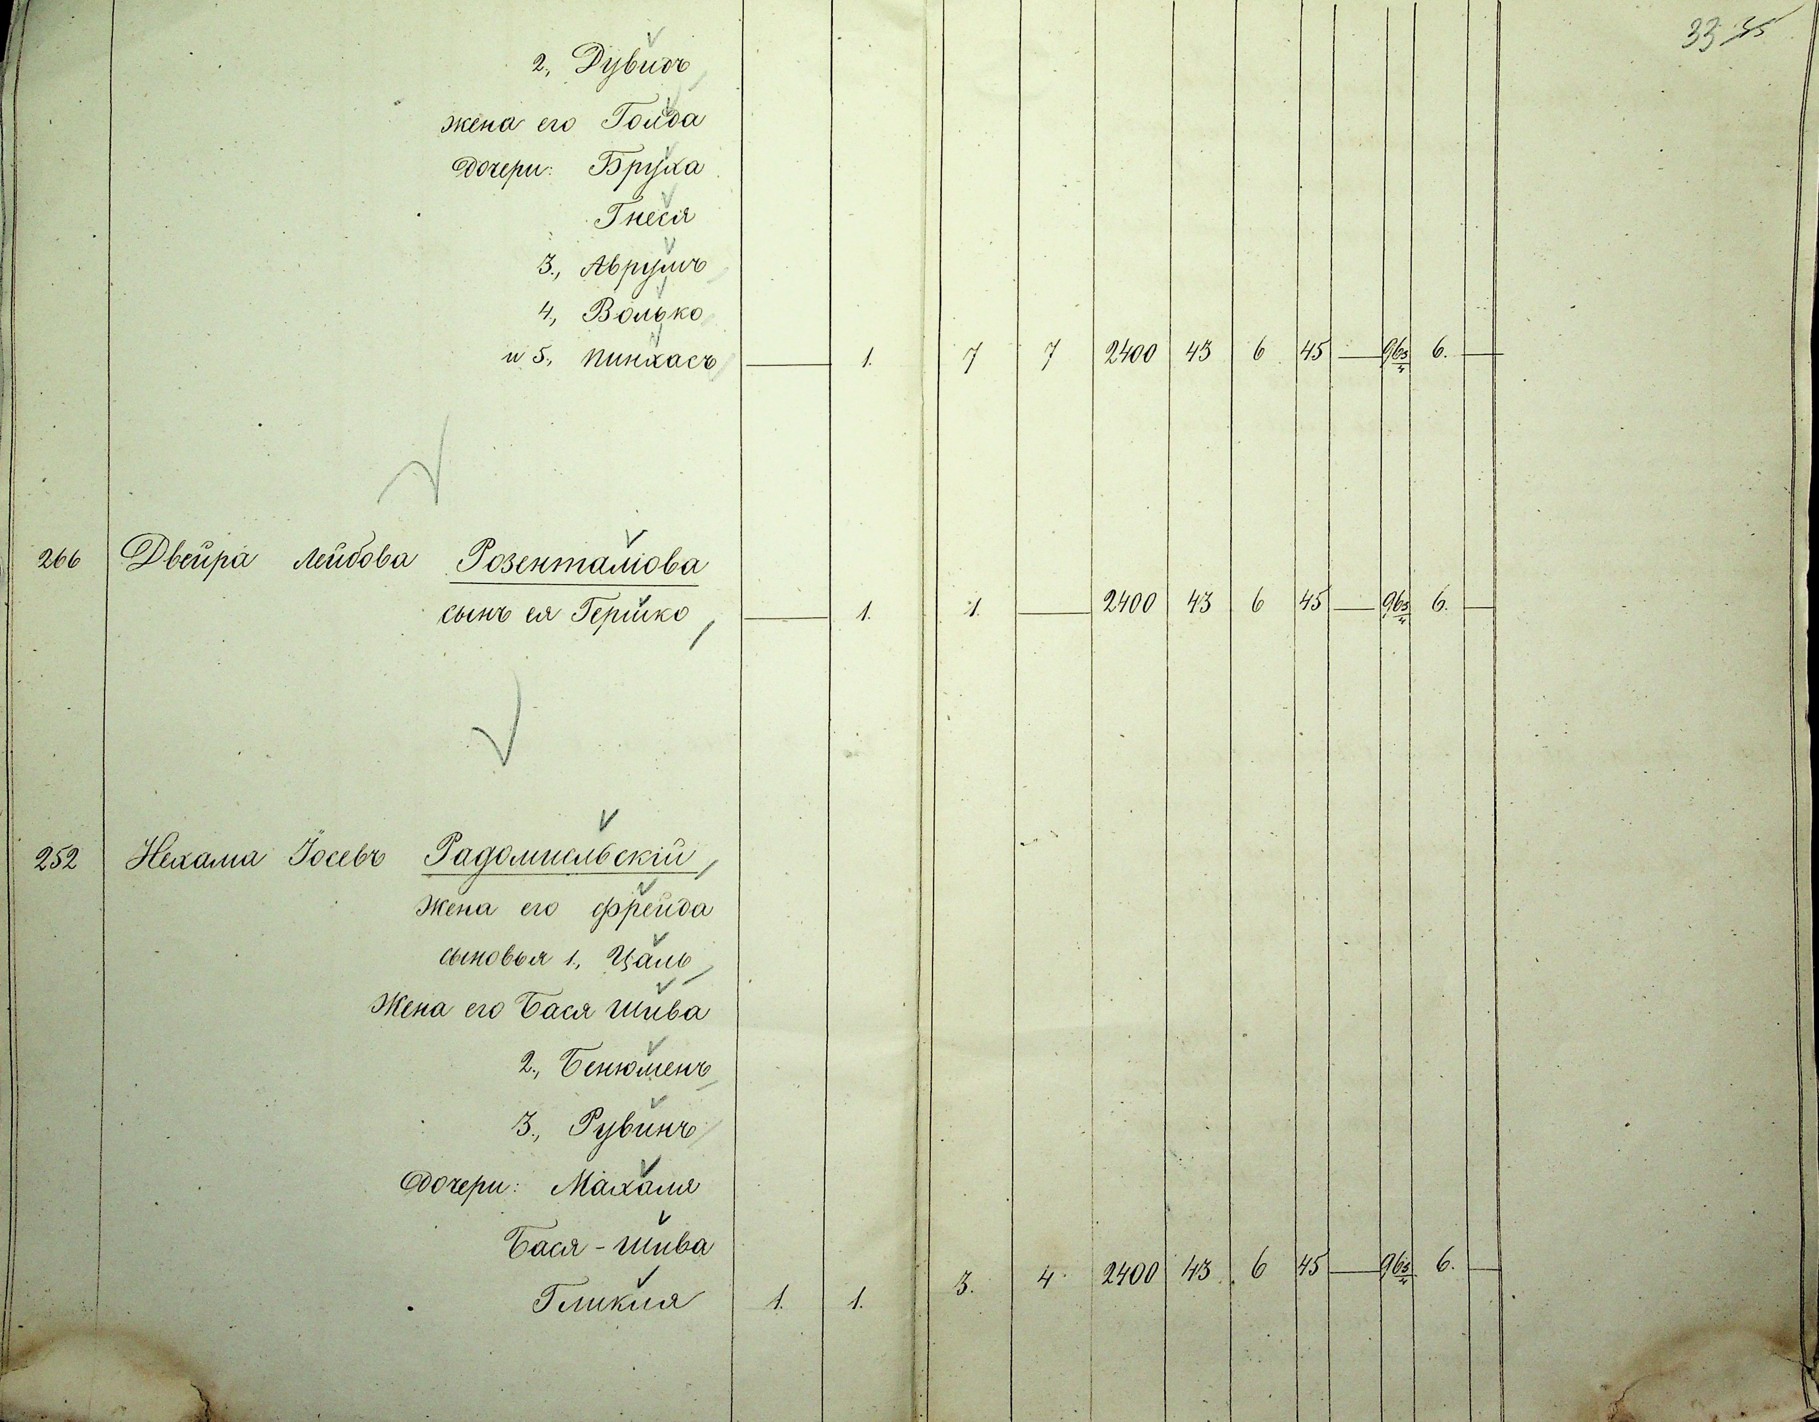 33 35
2., Дувидъ
жена его Голда
дочери: Бруха
Гнеся
3., Аврумъ
4., Волько
и 5., Пинхасъ — 1. 7 7 2400 43 6 45 — 96 3/4 6. —
266 Двейра Лейбова Розенталiова
сынъ ея Гершко — 1. 1. — 2400 43 6 45 — 96 3/4 6. —
252 Нехама Iосевъ Радомысльскiй
жена его Фрейда
сыновья 1., Цаль
Жена его Бася Шива
2., Бенюменъ
3., Рувинъ
дочери: Махаля
Бася - Шива
Гликля 1. 1. 3. 4. 2400 43 6 45 — 96 3/4 6. —